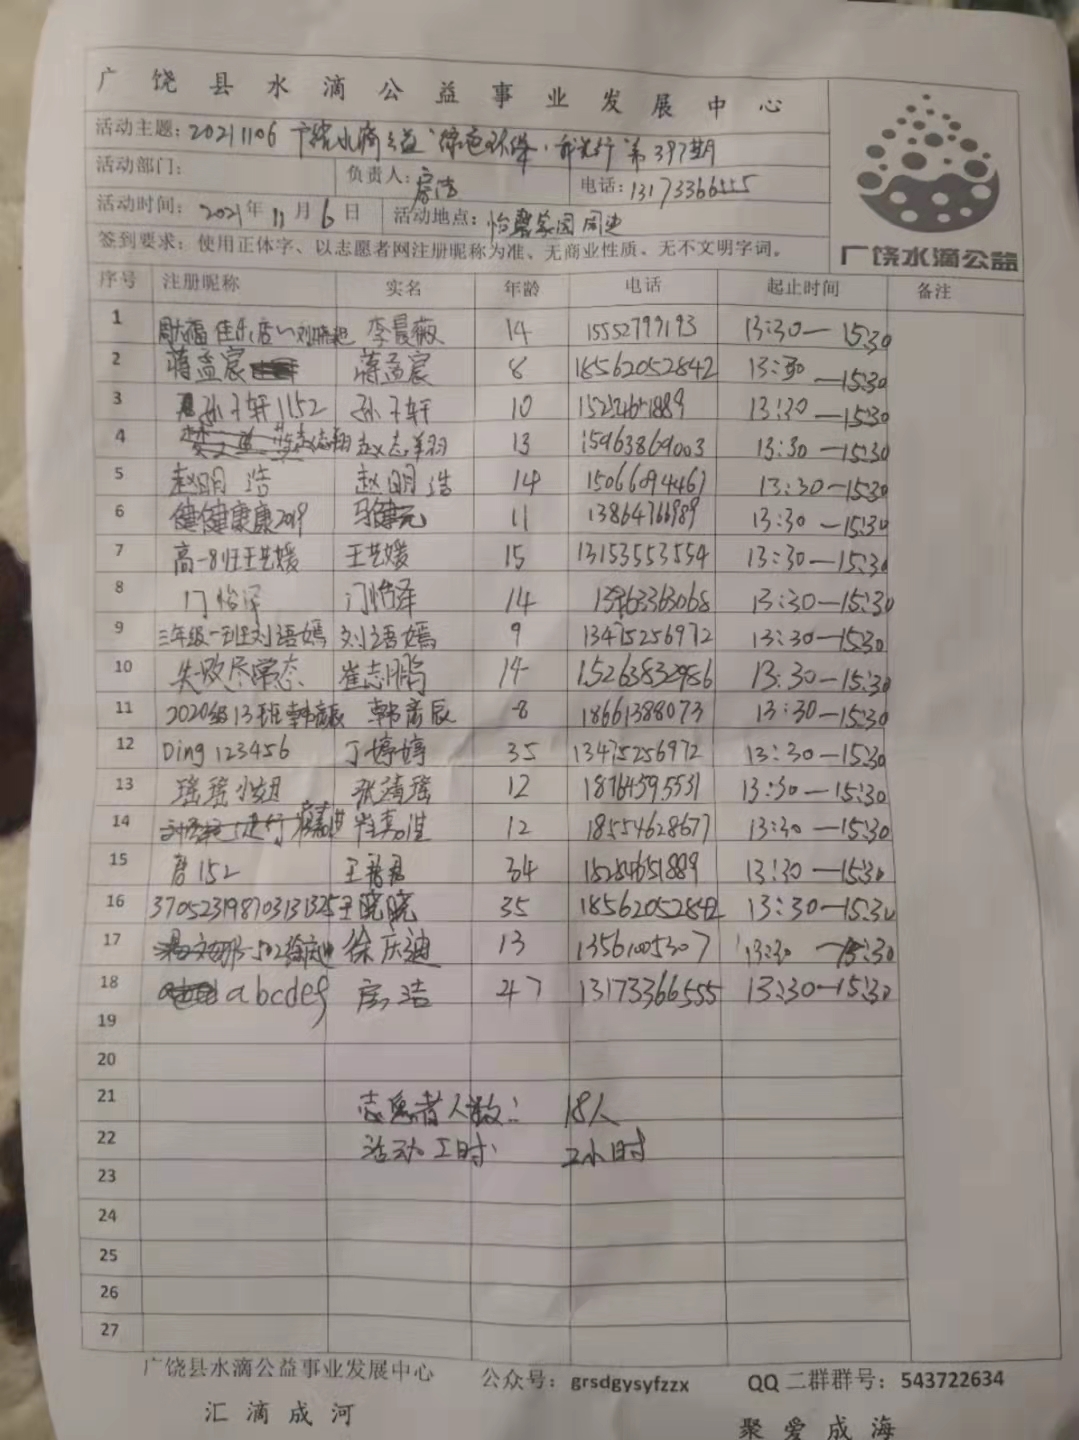 广饶县水滴公益事业发展中心
活动主题：20211106 广饶水滴公益“绿色环保，前进行”第397期
活动部门： 负责人：房浩 电话：13173366555
活动时间：2021年11月6日 活动地点：怡馨家园周边
签到要求：使用正体字、以志愿者网注册昵称为准、无商业性质、无不文明字词。
广饶水滴公益
序号 注册昵称 实名 年龄 电话 起止时间 备注
1 李晨薇 14 15552799193 13:30—15:30
2 蒋孟宸 蒋孟宸 8 18562052842 13:30—15:30
3 孙子轩1152 孙子轩 10 13:30—15:30
4 赵志翔 赵志翔 13 15963869003 13:30—15:30
5 赵明浩 赵明浩 14 15066094467 13:30—15:30
6 健健康康2019 11 13864766989 13:30—15:30
7 王艺媛 王艺媛 15 13153553554 13:30—15:30
8 门怡泽 门怡泽 14 13:30—15:30
9 三年级一班刘语嫣 刘语嫣 9 13475256972 13:30—15:30
10 失败尽常态 崔志鹏 14 15263832986 13:30—15:30
11 2020级13班韩商辰 韩商辰 8 18661388073 13:30—15:30
12 Ding 123456 丁婷婷 35 13475256972 13:30—15:30
13 瑶瑶小姐 张清瑶 12 18764595531 13:30—15:30
14 12 18554628677 13:30—15:30
15 君152 王君君 34 15284651889 13:30—15:30
16 370523198703131325 王晓晓 35 18562052842 13:30—15:30
17 徐庆迪 13 13561005307 13:30—15:30
18 abcdef 房浩 47 13173366555 13:30—15:30
19
20
21 志愿者人数： 18人
22 活动工时： 2小时
23
24
25
26
27
广饶县水滴公益事业发展中心 公众号：grsdgysyfzzx QQ二群群号：543722634
汇滴成河 聚爱成海